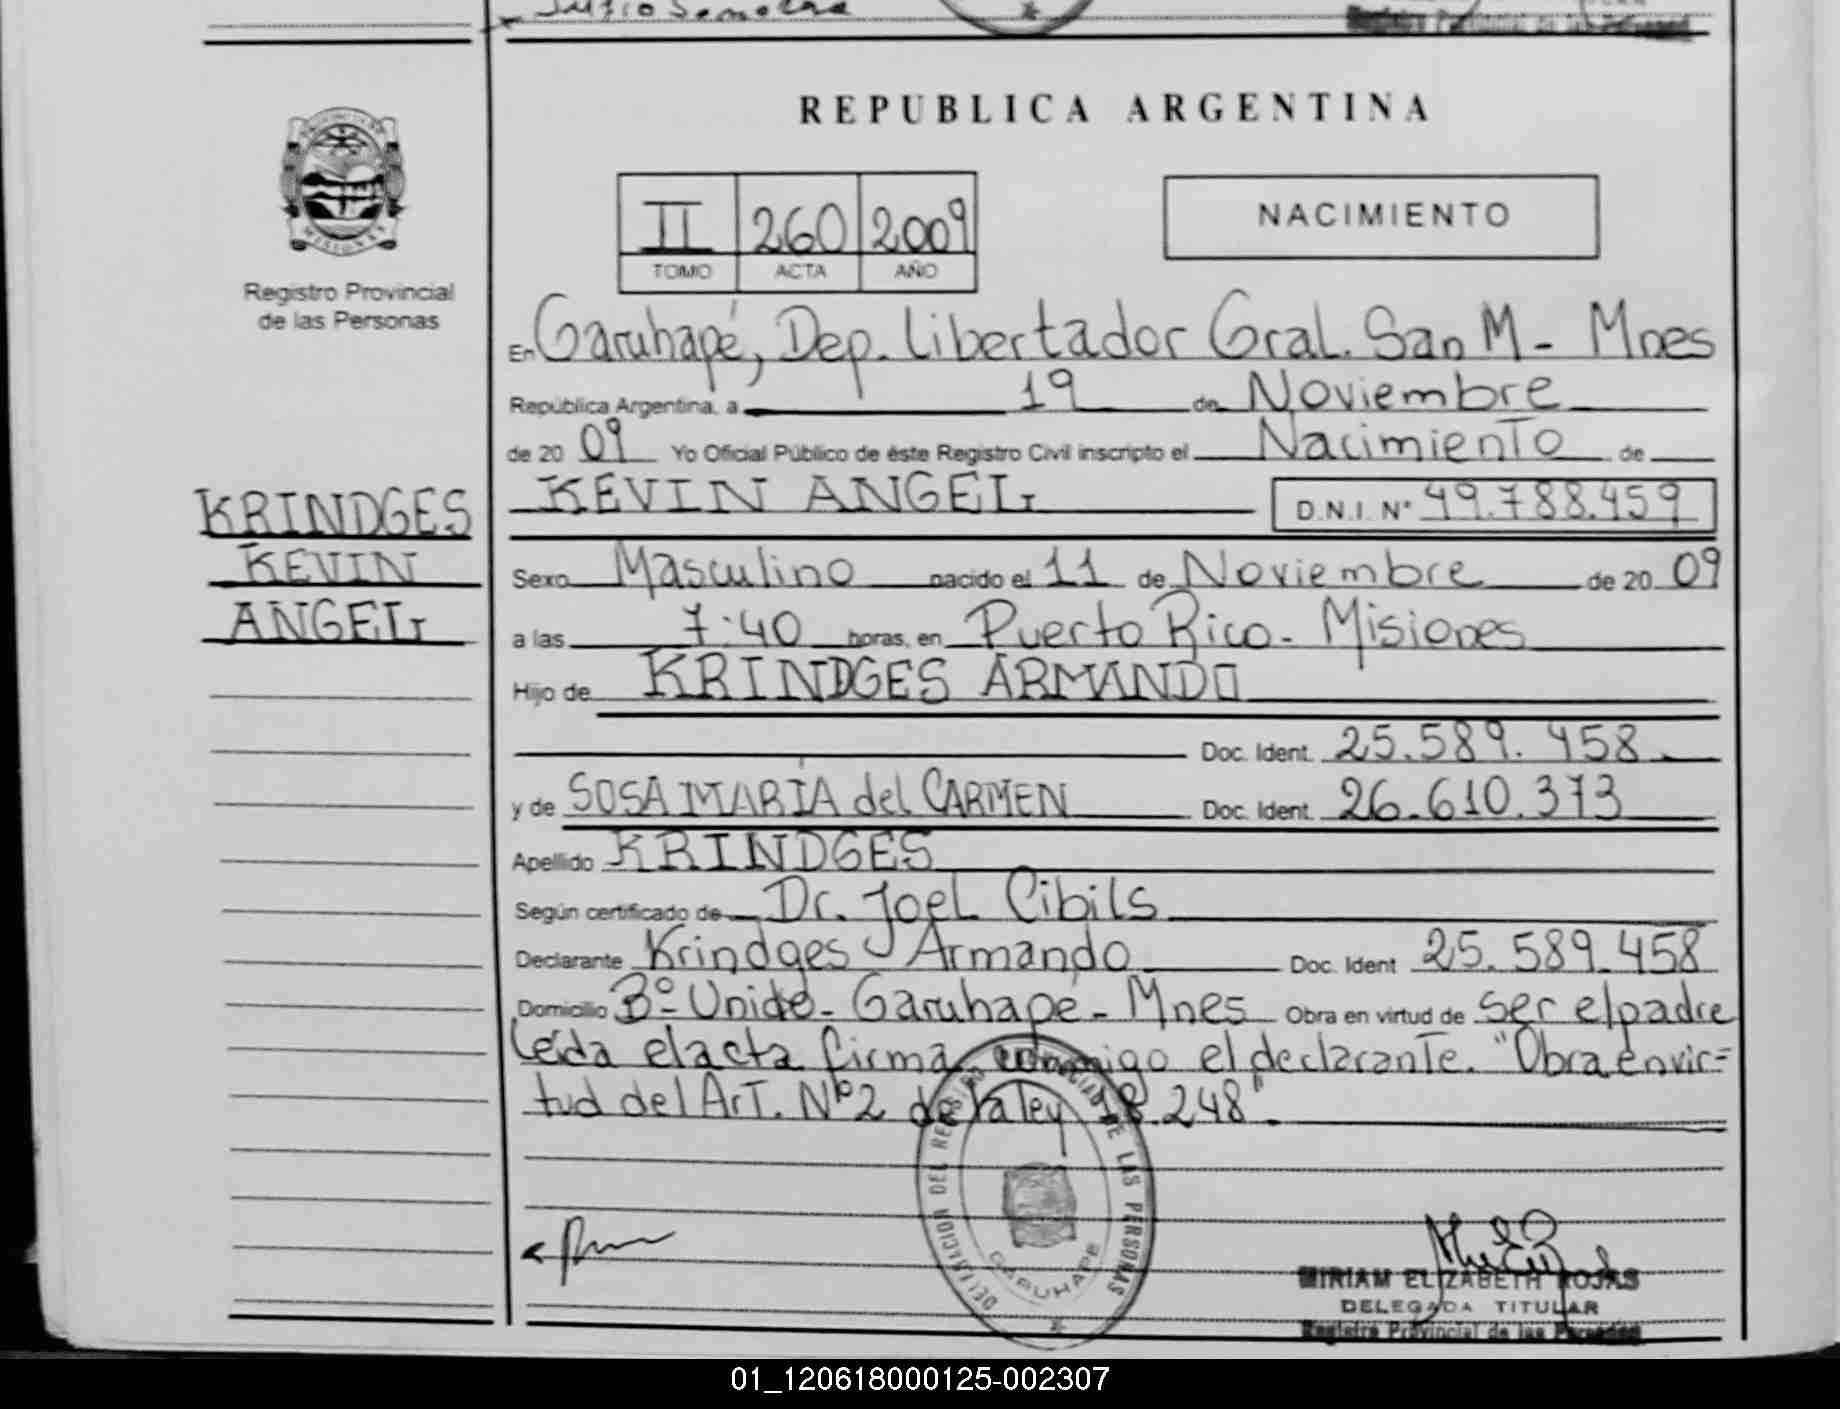 REPUBLICA ARGENTINA
PROVINCIA
MISIONES
Registro Provincial
de las Personas
II 260 2009
TOMO ACTA AÑO
NACIMIENTO
En Garuhapé, Dep. Libertador Gral. San M - Mnes
República Argentina, a 19 de Noviembre
de 20 09 Yo Oficial Público de éste Registro Civil inscripto el Nacimiento de
KRINDGES
KEVIN
ANGEL
KEVIN ANGEL D.N.I. N° 49.788.459
Sexo Masculino nacido el 11 de Noviembre de 20 09
a las 7:40 horas, en Puerto Rico - Misiones
Hijo de KRINDGES ARMANDO
Doc. Ident. 25.589.458
y de SOSA MARÍA del CARMEN Doc. Ident. 26.610.373
Apellido KRINDGES
Según certificado de Dr. Joel Cibils
Declarante Krindges Armando Doc. Ident 25.589.458
Domicilio Bº Unido - Garuhapé - Mnes Obra en virtud de ser el padre
Leída el acta firma conmigo el declarante. "Obra en vir=
tud del Art. Nº 2 de la ley 18.248".
DELEGACION DEL REGISTRO PROVINCIAL DE LAS PERSONAS
GARUHAPE
MIRIAM ELIZABETH ROJAS
DELEGADA TITULAR
Registro Provincial de las Personas
01_120618000125-002307